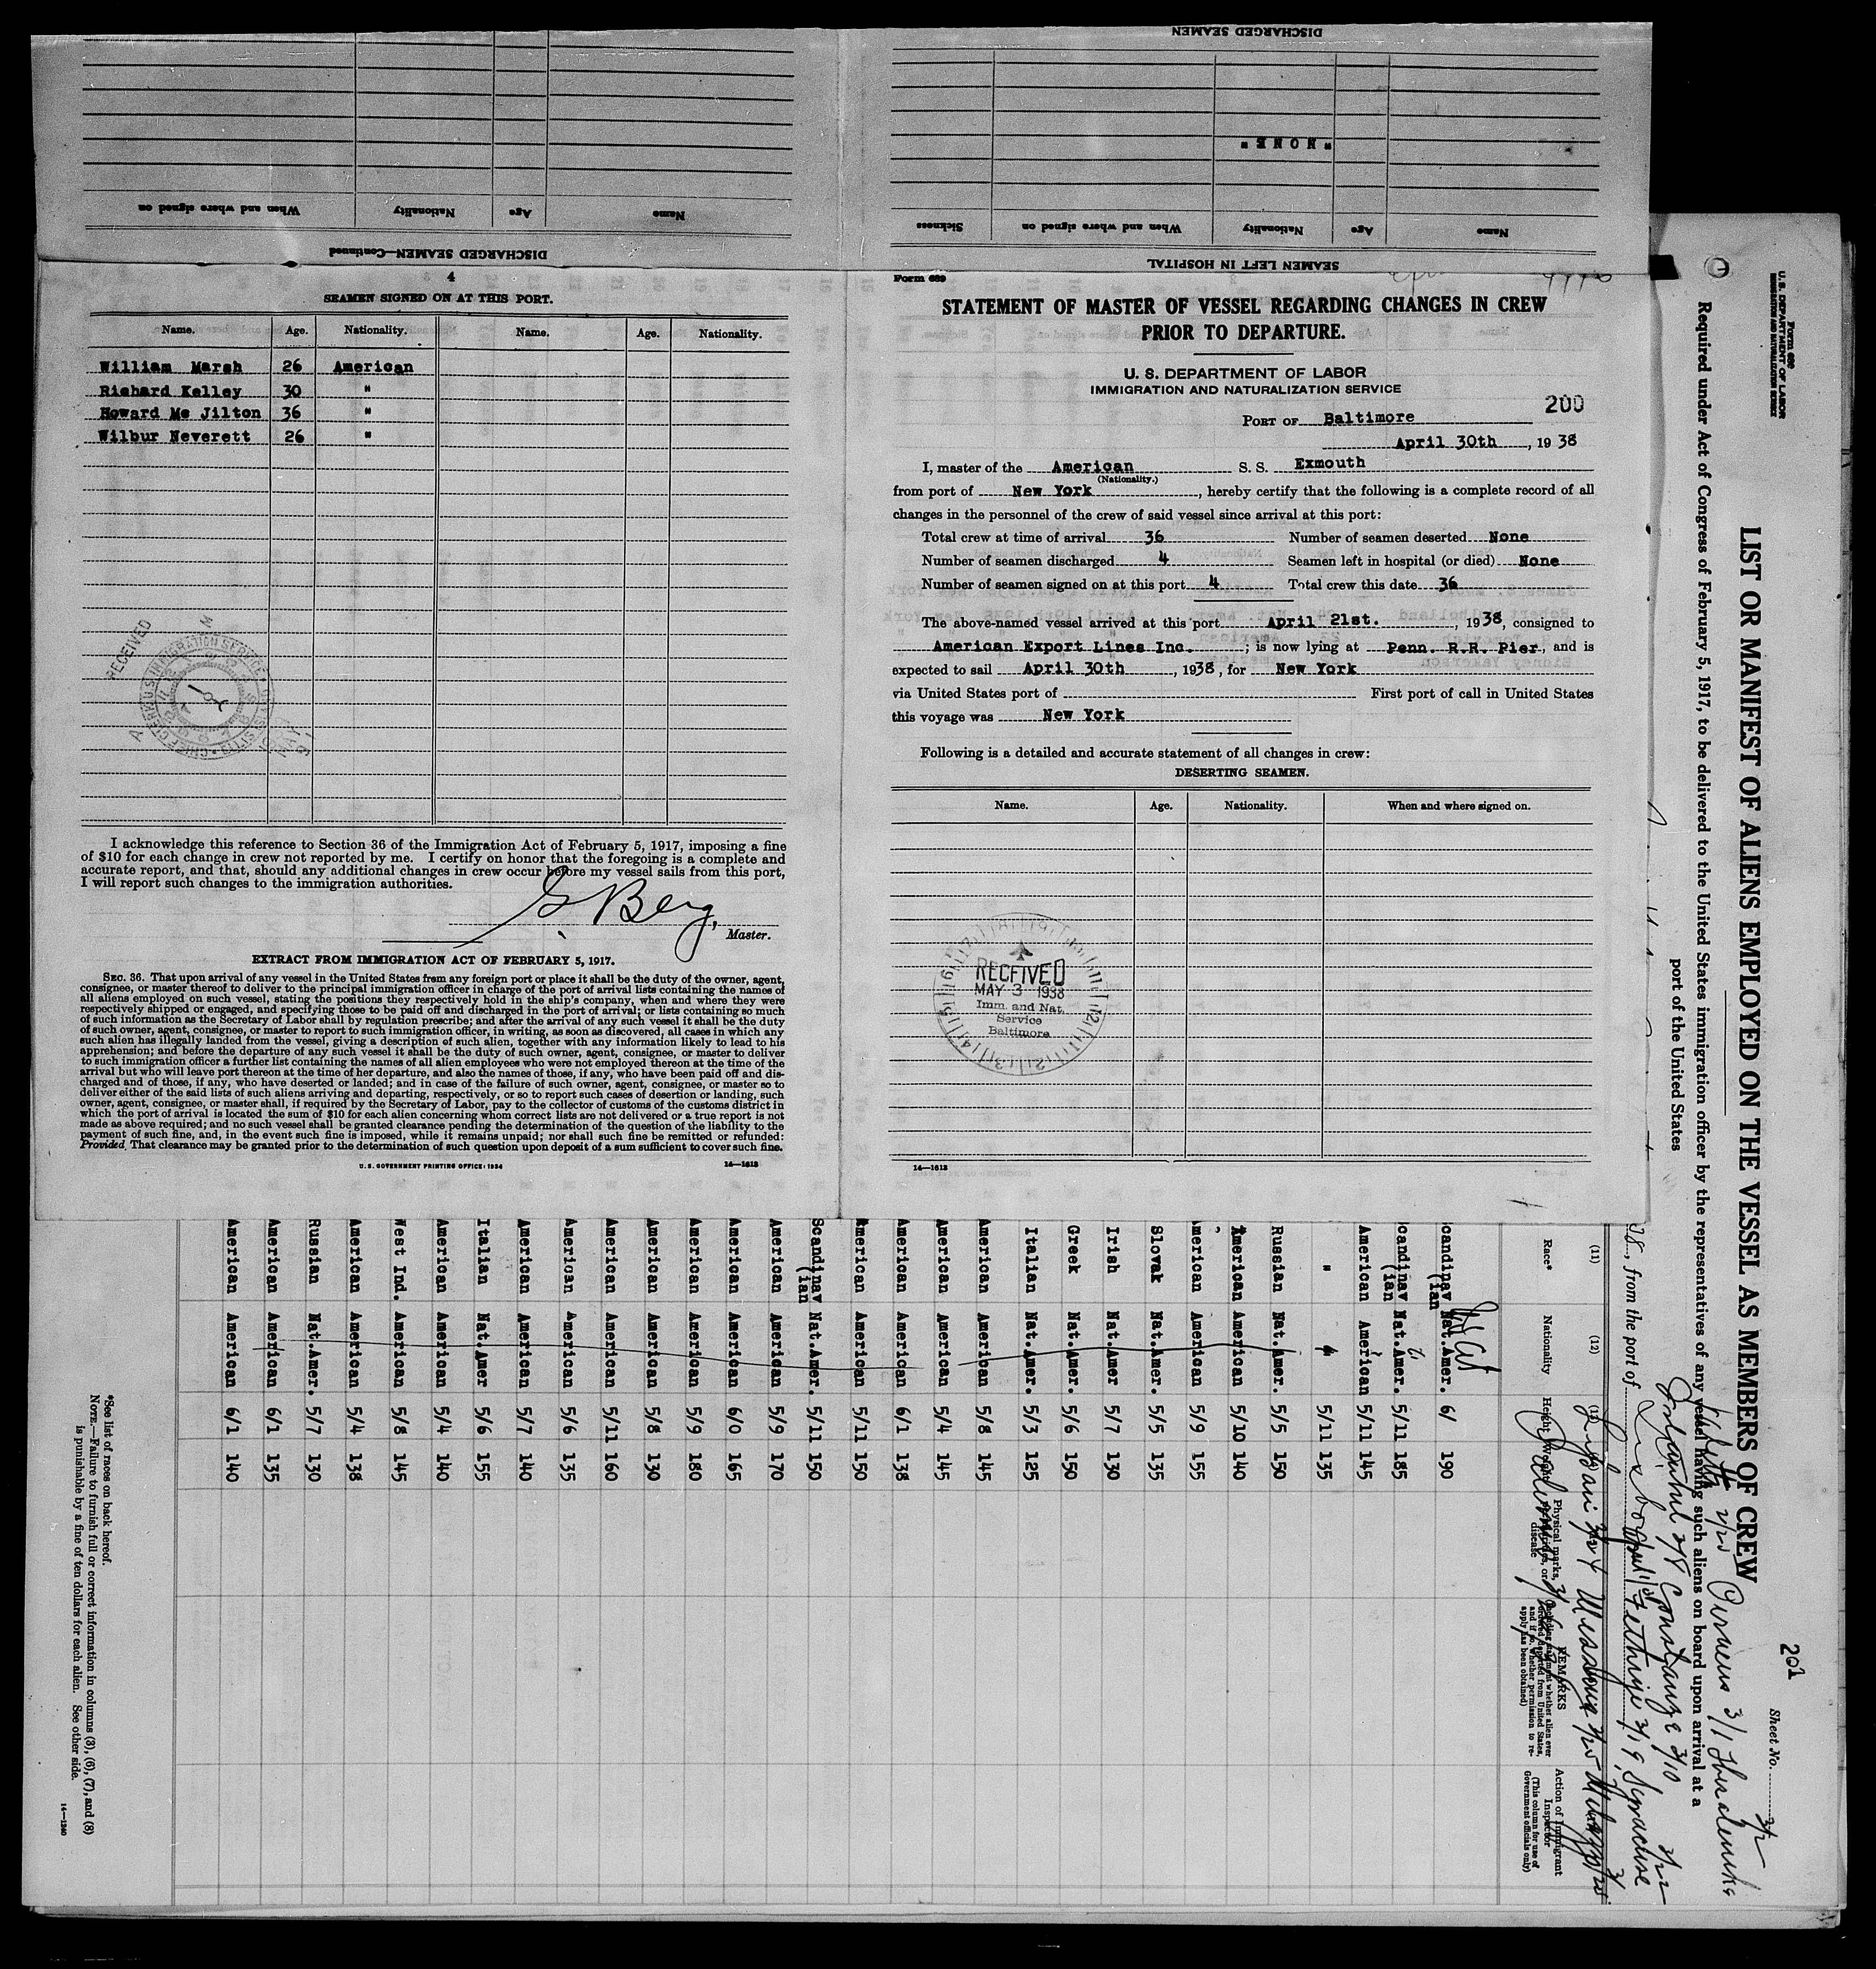 DISCHARGED SEAMEN
"NONE"
Name Age Nationality When and where signed on Sickness
SEAMEN LEFT IN HOSPITAL
Name Age Nationality When and where signed on
DISCHARGED SEAMEN—Continued
4
SEAMEN SIGNED ON AT THIS PORT.
Name. Age. Nationality. Name. Age. Nationality.
William Marsh 26 American
Richard Kelley 30 "
Howard Mc Jilton 36 "
Wilbur Neverett 26 "
RECEIVED
I acknowledge this reference to Section 36 of the Immigration Act of February 5, 1917, imposing a fine
of $10 for each change in crew not reported by me. I certify on honor that the foregoing is a complete and
accurate report, and that, should any additional changes in crew occur before my vessel sails from this port,
I will report such changes to the immigration authorities.
G. Berg,
Master.
EXTRACT FROM IMMIGRATION ACT OF FEBRUARY 5, 1917.
SEC. 36. That upon arrival of any vessel in the United States from any foreign port or place it shall be the duty of the owner, agent,
consignee, or master thereof to deliver to the principal immigration officer in charge of the port of arrival lists containing the names of
all aliens employed on such vessel, stating the positions they respectively hold in the ship's company, when and where they were
respectively shipped or engaged, and specifying those to be paid off and discharged in the port of arrival; or lists containing so much
of such information as the Secretary of Labor shall by regulation prescribe; and after the arrival of any such vessel it shall be the duty
of such owner, agent, consignee, or master to report to such immigration officer, in writing, as soon as discovered, all cases in which any
such alien has illegally landed from the vessel, giving a description of such alien, together with any information likely to lead to his
apprehension; and before the departure of any such vessel it shall be the duty of such owner, agent, consignee, or master to deliver
to such immigration officer a further list containing the names of all alien employees who were not employed thereon at the time of the
arrival but who will leave port thereon at the time of her departure, and also the names of those, if any, who have been paid off and dis-
charged and of those, if any, who have deserted or landed; and in case of the failure of such owner, agent, consignee, or master so to
deliver either of the said lists of such aliens arriving and departing, respectively, or so to report such cases of desertion or landing, such
owner, agent, consignee, or master shall, if required by the Secretary of Labor, pay to the collector of customs of the customs district in
which the port of arrival is located the sum of $10 for each alien concerning whom correct lists are not delivered or a true report is not
made as above required; and no such vessel shall be granted clearance pending the determination of the question of the liability to the
payment of such fine, and, in the event such fine is imposed, while it remains unpaid; nor shall such fine be remitted or refunded:
Provided, That clearance may be granted prior to the determination of such question upon deposit of a sum sufficient to cover such fine.
U.S. GOVERNMENT PRINTING OFFICE: 1934 14—1613
Form 689
STATEMENT OF MASTER OF VESSEL REGARDING CHANGES IN CREW
PRIOR TO DEPARTURE.
U. S. DEPARTMENT OF LABOR
IMMIGRATION AND NATURALIZATION SERVICE
200
PORT OF Baltimore
April 30th, 1938
I, master of the American S. S. Exmouth
(Nationality.)
from port of New York, hereby certify that the following is a complete record of all
changes in the personnel of the crew of said vessel since arrival at this port:
Total crew at time of arrival 36 Number of seamen deserted None
Number of seamen discharged 4 Seamen left in hospital (or died) None
Number of seamen signed on at this port 4 Total crew this date 36
The above-named vessel arrived at this port April 21st., 1938, consigned to
American Export Lines Inc.; is now lying at Penn. R.R. Pier, and is
expected to sail April 30th, 1938, for New York
via United States port of First port of call in United States
this voyage was New York
Following is a detailed and accurate statement of all changes in crew:
DESERTING SEAMEN.
Name. Age. Nationality. When and where signed on.
RECEIVED
MAY 3 1938
Imm. and Nat.
Service
Baltimore
14—1613
Form 680
U.S. DEPARTMENT OF LABOR
IMMIGRATION AND NATURALIZATION SERVICE
201
Sheet No.
LIST OR MANIFEST OF ALIENS EMPLOYED ON THE VESSEL AS MEMBERS OF CREW
Required under Act of Congress of February 5, 1917, to be delivered to the United States immigration officer by the representatives of any vessel having such aliens on board upon arrival at a
port of the United States
Piraeus 3/1
Constanza 3/10
38, from the port of
(11) (12) (13)
Race* Nationality Height Weight Physical marks, peculiarities, or disease REMARKS Action of Immigrant Inspector
(This column for use of Government officials only)
Scandinav (ian Nat.Amer. 6/ 190
Scandinav (ian Nat.Amer. 5/11 185
American American 5/11 145
" " 5/11 135
Russian Nat.Amer. 5/5 150
American American 5/10 140
American American 5/9 155
Slovak Nat.Amer. 5/5 135
Irish Nat.Amer 5/7 130
Greek Nat.Amer. 5/6 150
Italian Nat.Amer. 5/3 125
American American 5/8 145
American American 5/4 145
American American 6/1 138
American American 5/11 150
Scandinav (ian Nat.Amer. 5/11 150
American American 5/9 170
American American 6/0 165
American American 5/9 180
American American 5/8 130
American American 5/11 160
American American 5/6 135
American American 5/7 140
Italian Nat.Amer 5/6 155
American American 5/4 140
West Ind. American 5/8 145
American American 5/4 138
Russian Nat.Amer. 5/7 130
American American 6/1 135
American American 6/1 140
*See list of races on back hereof.
NOTE.—Failure to furnish full or correct information in columns (3), (6), (7), and (8)
is punishable by a fine of ten dollars for each alien. See other side.
14—1240